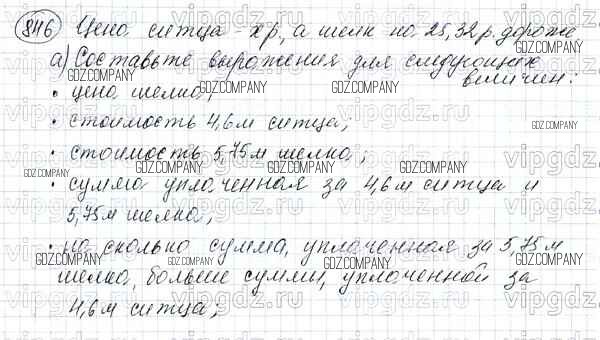 846 Цена ситца - x р, а шелк на 25,32 р. дороже
а) Составьте выражения для следующих
величин:
• цена шелка;
• стоимость 4,6м ситца;
• стоимость 5,75м шелка;
• сумма уплаченная за 4,6м ситца и
5,75м шелка;
• на сколько сумма, уплаченная за 5,75м
шелка, больше суммы, уплаченной за
4,6м ситца;